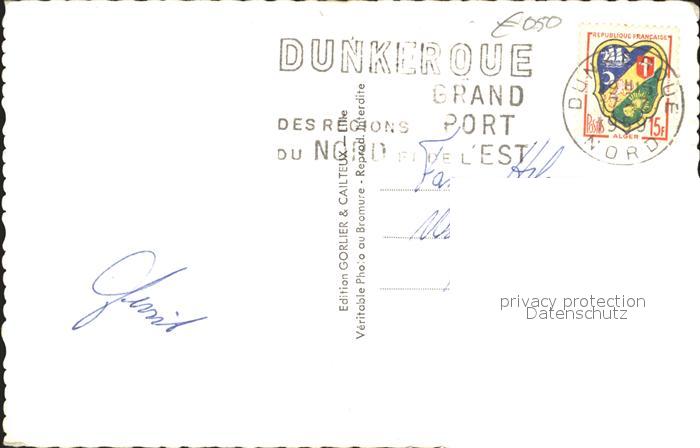 € 050
DUNKERQUE
GRAND
DES REGIONS PORT
DU NORD ET DE L'EST
REPUBLIQUE FRANÇAISE
Postes 15F
ALGER
DUNKERQUE
1959
NORD
Edition GORLIER & CAILTEUX - Lille
Véritable Photo au Bromure - Reprod. Interdite
Fa
privacy protection
Datenschutz